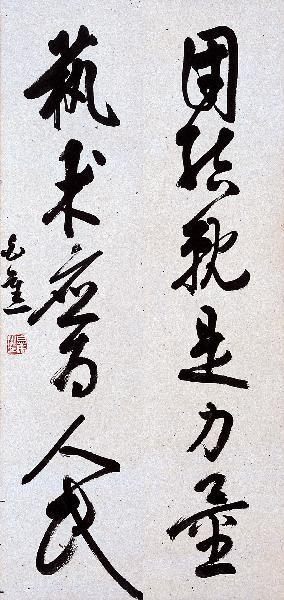 团结就是力量
艺术应为人民